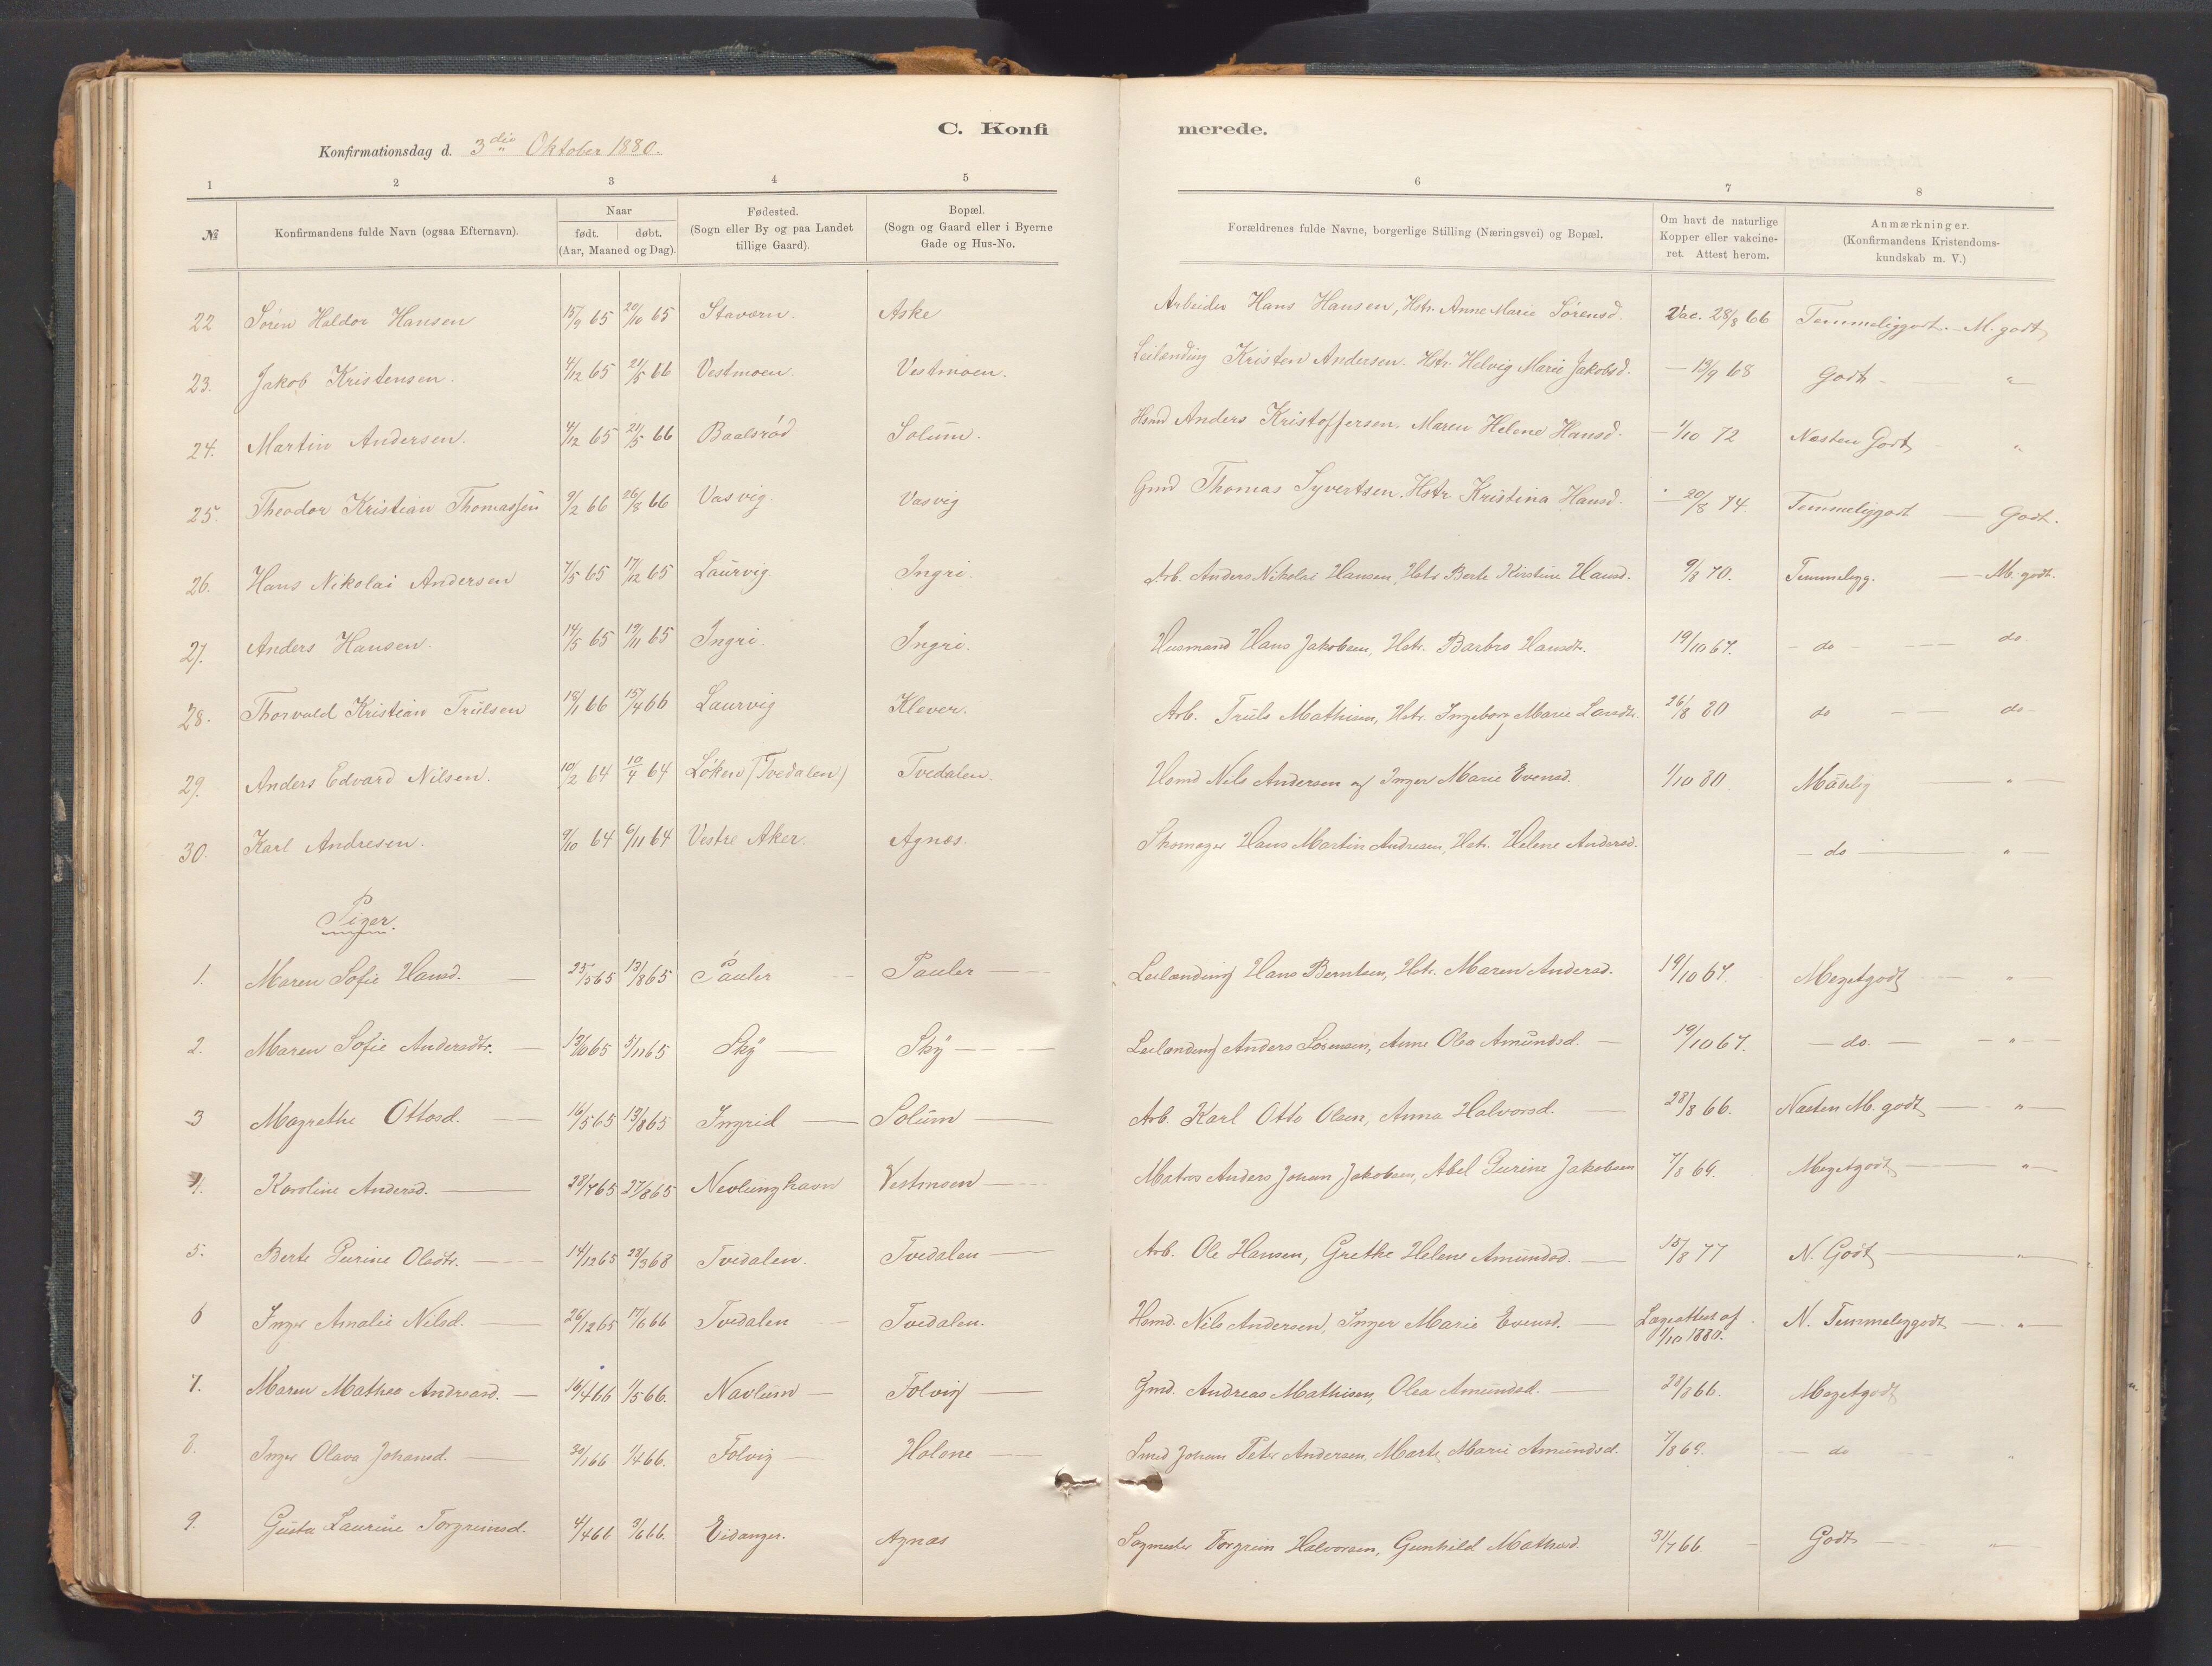 C. Konfi
merede.
Konfirmationsdag d. 3die Oktober 1880.
1 2 3 4 5 6 7 8
№ Konfirmandens fulde Navn (ogsaa Efternavn). Naar født. døbt. (Aar, Maaned og Dag). Fødested. (Sogn eller By og paa Landet tillige Gaard). Bopæl. (Sogn og Gaard eller i Byerne Gade og Hus-No. Forældrenes fulde Navne, borgerlige Stilling (Næringsvei) og Bopæl. Om havt de naturlige Kopper eller vakcineret. Attest herom. Anmærkninger. (Konfirmandens Kristendomskundskab m. V.)
22 Sören Haldor Hansen 15/9 65 20/10 65 Staværn. Aske Arbeider Hans Hansen, Hstr. Anne Marie Sörensd. Vac. 28/8 66 Temmeliggodt. — M. godt
23. Jakob Kristensen. 4/12 65 21/5 66 Vestmoen. Vestmoen. Leilænding Kristen Andersen. Hstr. Helvig Marie Jakobsd. — 13/9 68 Godt — "
24. Martin Andersen. 4/12 65 21/5 66 Baalsröd Solum. Hsmd Anders Kristoffersen. Maren Helene Hansd. — 1/10 72 Næsten Godt "
25. Theodor Kristian Thomassen 9/2 66 26/8 66 Vasvig. Vasvig Gmd Thomas Syvertsen. Hstr Kristina Hansd. — 20/8 74. Temmeliggodt — Godt.
26. Hans Nikolai Andersen 7/5 65 17/12 65 Laurvig Ingri Arb. Anders Nikolai Hansen, Hstr Berte Kirstine Hansd. 9/8 70. Temmeligg. — M. godt.
27. Anders Hansen. 14/5 65 19/11 65 Ingri. Ingri. Husmand Hans Jakobsen, Hstr. Barbro Hansdtr. 19/10 67. — do — do
28. Thorvald Kristian Trulsen 18/1 66 15/4 66 Laurvig Klever. Arb. Truls Mathisen, Hstr. Ingeborg Marie Larsdtr. 26/8 80 do — do —
29. Anders Edvard Nilsen. 10/2 64 10/4 64 Löken (Tvedalen) Tvedalen. Hsmd Nils Andersen og Inger Marie Evensd. 1/10 80 Mådelig — " —
30. Karl Andresen. 9/10 64 6/11 64 Vestre Aker. Agnes. Skomager Hans Martin Andresen, Hstr. Helene Andersd. — do — "
Piger.
1. Maren Sofie Hansd. — 25/5 65 13/8 65 Pauler Pauler — Leilænding Hans Berntsen, Hstr. Maren Andersd. 19/10 67. Megetgodt — "
2. Maren Sofie Andersdtr. — 13/10 65 5/11 65 Sky — Sky — Leilænding Anders Sörensen, Anne Olea Amundsd. — 19/10 67. — do. — " —
3 Magrethe Ottosd. — 16/5 65 13/8 65 Ingrid — Solum — Arb. Karl Otto Olsen, Anna Halvorsd. — 28/8 66. Næsten M. godt — " —
4. Karoline Andersd. — 28/7 65 27/8 65 Nevlunghavn Vestmoen — Matros Anders Johan Jakobsen, Abel Gurine Jakobsen 7/8 69. Megetgodt — "
5. Berte Gurine Olsdtr. — 14/12 65 28/3 68 Tvedalen. Tvedalen — Arb. Ole Hansen, Grethe Helene Amundsd. — 15/8 77 N. Godt — "
6 Inger Amalie Nilsd. — 26/12 65 17/6 66 Tvedalen — Tvedalen. Hsmd. Nils Andersen, Inger Marie Evensd. — Lægeattest af 1/10 1880. N. Temmeliggodt — " —
7. Maren Mathea Andreasd. — 16/4 66 1/5 66. Navlum — Tolvig — Gmd. Andreas Mathisen, Olea Amundsd. — 28/8 66. Megetgodt "
8. Inger Olava Johansd. — 30/1 66 1/4 66. Folvig — Halone — Smed Johan Peter Andersen, Marte Marie Amundsd. 7/8 69. — do "
9. Gusta Laurine Torgrimsd. 4/4 66 3/6 66. Eidanger. Agnæs Sagmester Torgrim Halvorsen, Gunhild Mathisd. 31/7 66. — Godt — "